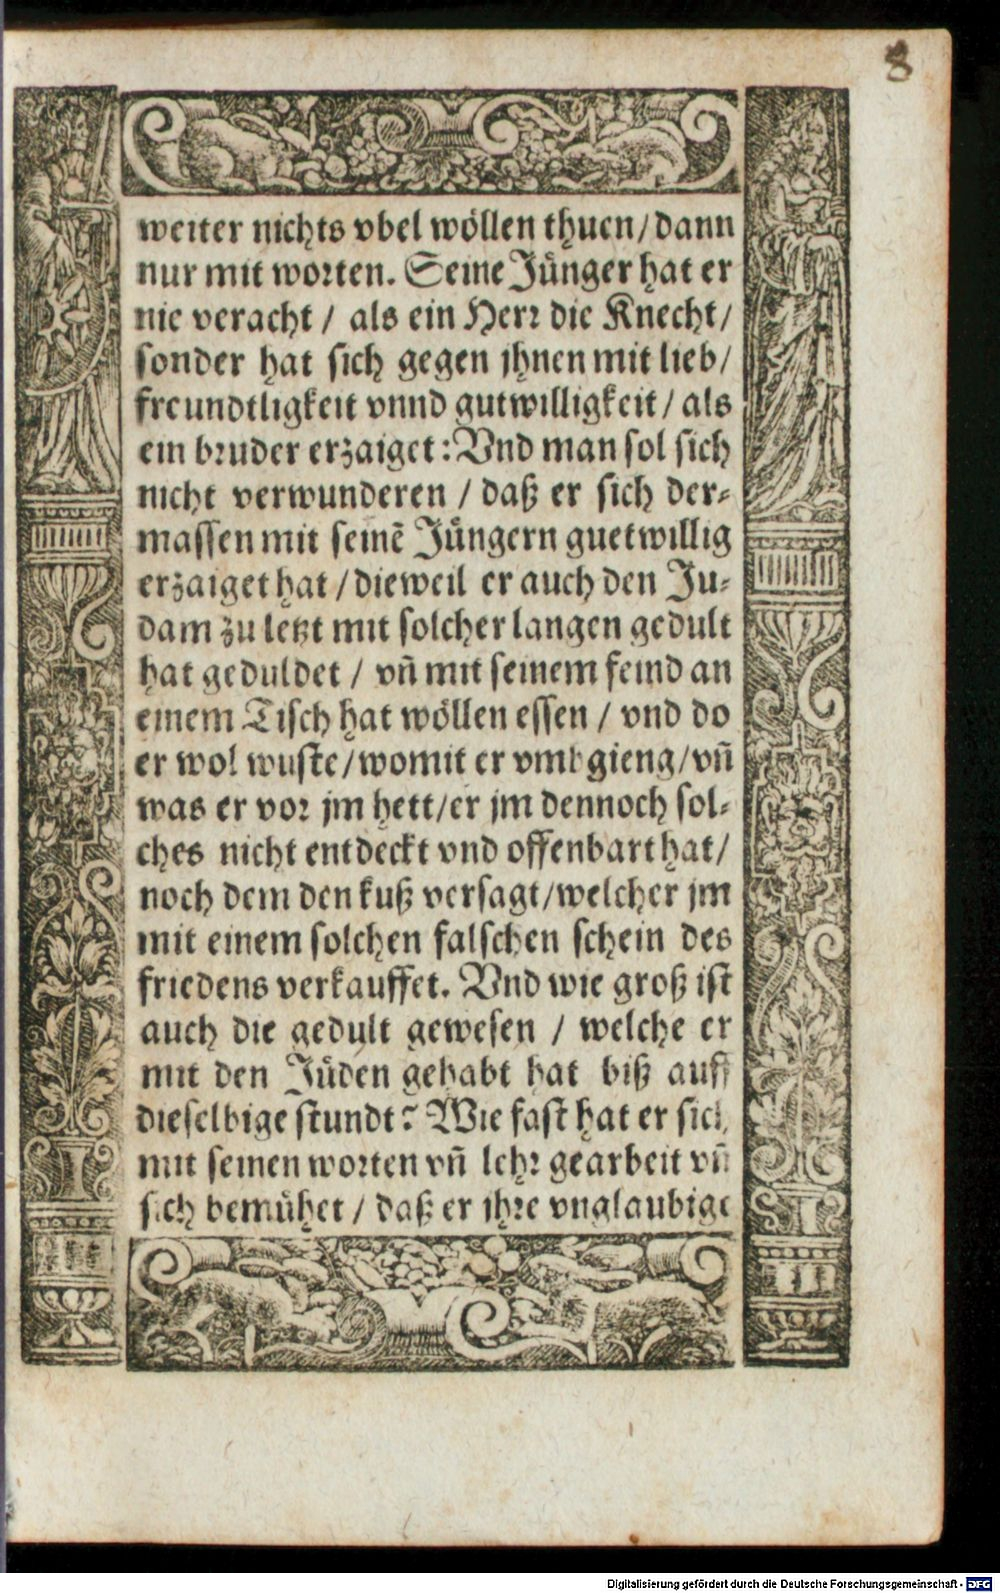 8
weiter nichts vbel wöllen thuen/dann
nur mit worten. Seine Jünger hat er
nie veracht / als ein Herr die Knecht/
sonder hat sich gegen jhnen mit lieb/
freundtligkeit vnnd gutwilligkeit/ als
ein bruder erzaiget: Vnd man sol sich
nicht verwunderen / daß er sich der-
massen mit seinē Jüngern guetwillig
erzaiget hat / dieweil er auch den Ju-
dam zu letzt mit solcher langen gedult
hat geduldet / vñ mit seinem feind an
einem Tisch hat wöllen essen / vnd do
er wol wuste/womit er vmbgieng/vñ
was er vor jm hett/er jm dennoch sol-
ches nicht entdeckt vnd offenbart hat/
noch dem den kuß versagt/welcher jm
mit einem solchen falschen schein des
friedens verkauffet. Vnd wie groß ist
auch die gedult gewesen / welche er
mit den Jüden gehabt hat biß auff
dieselbige stundt? Wie fast hat er sich
mit seinen worten vñ lehr gearbeit vñ
sich bemühet / daß er jhre vnglaubige
Digitalisierung gefördert durch die Deutsche Forschungsgemeinschaft - DFG